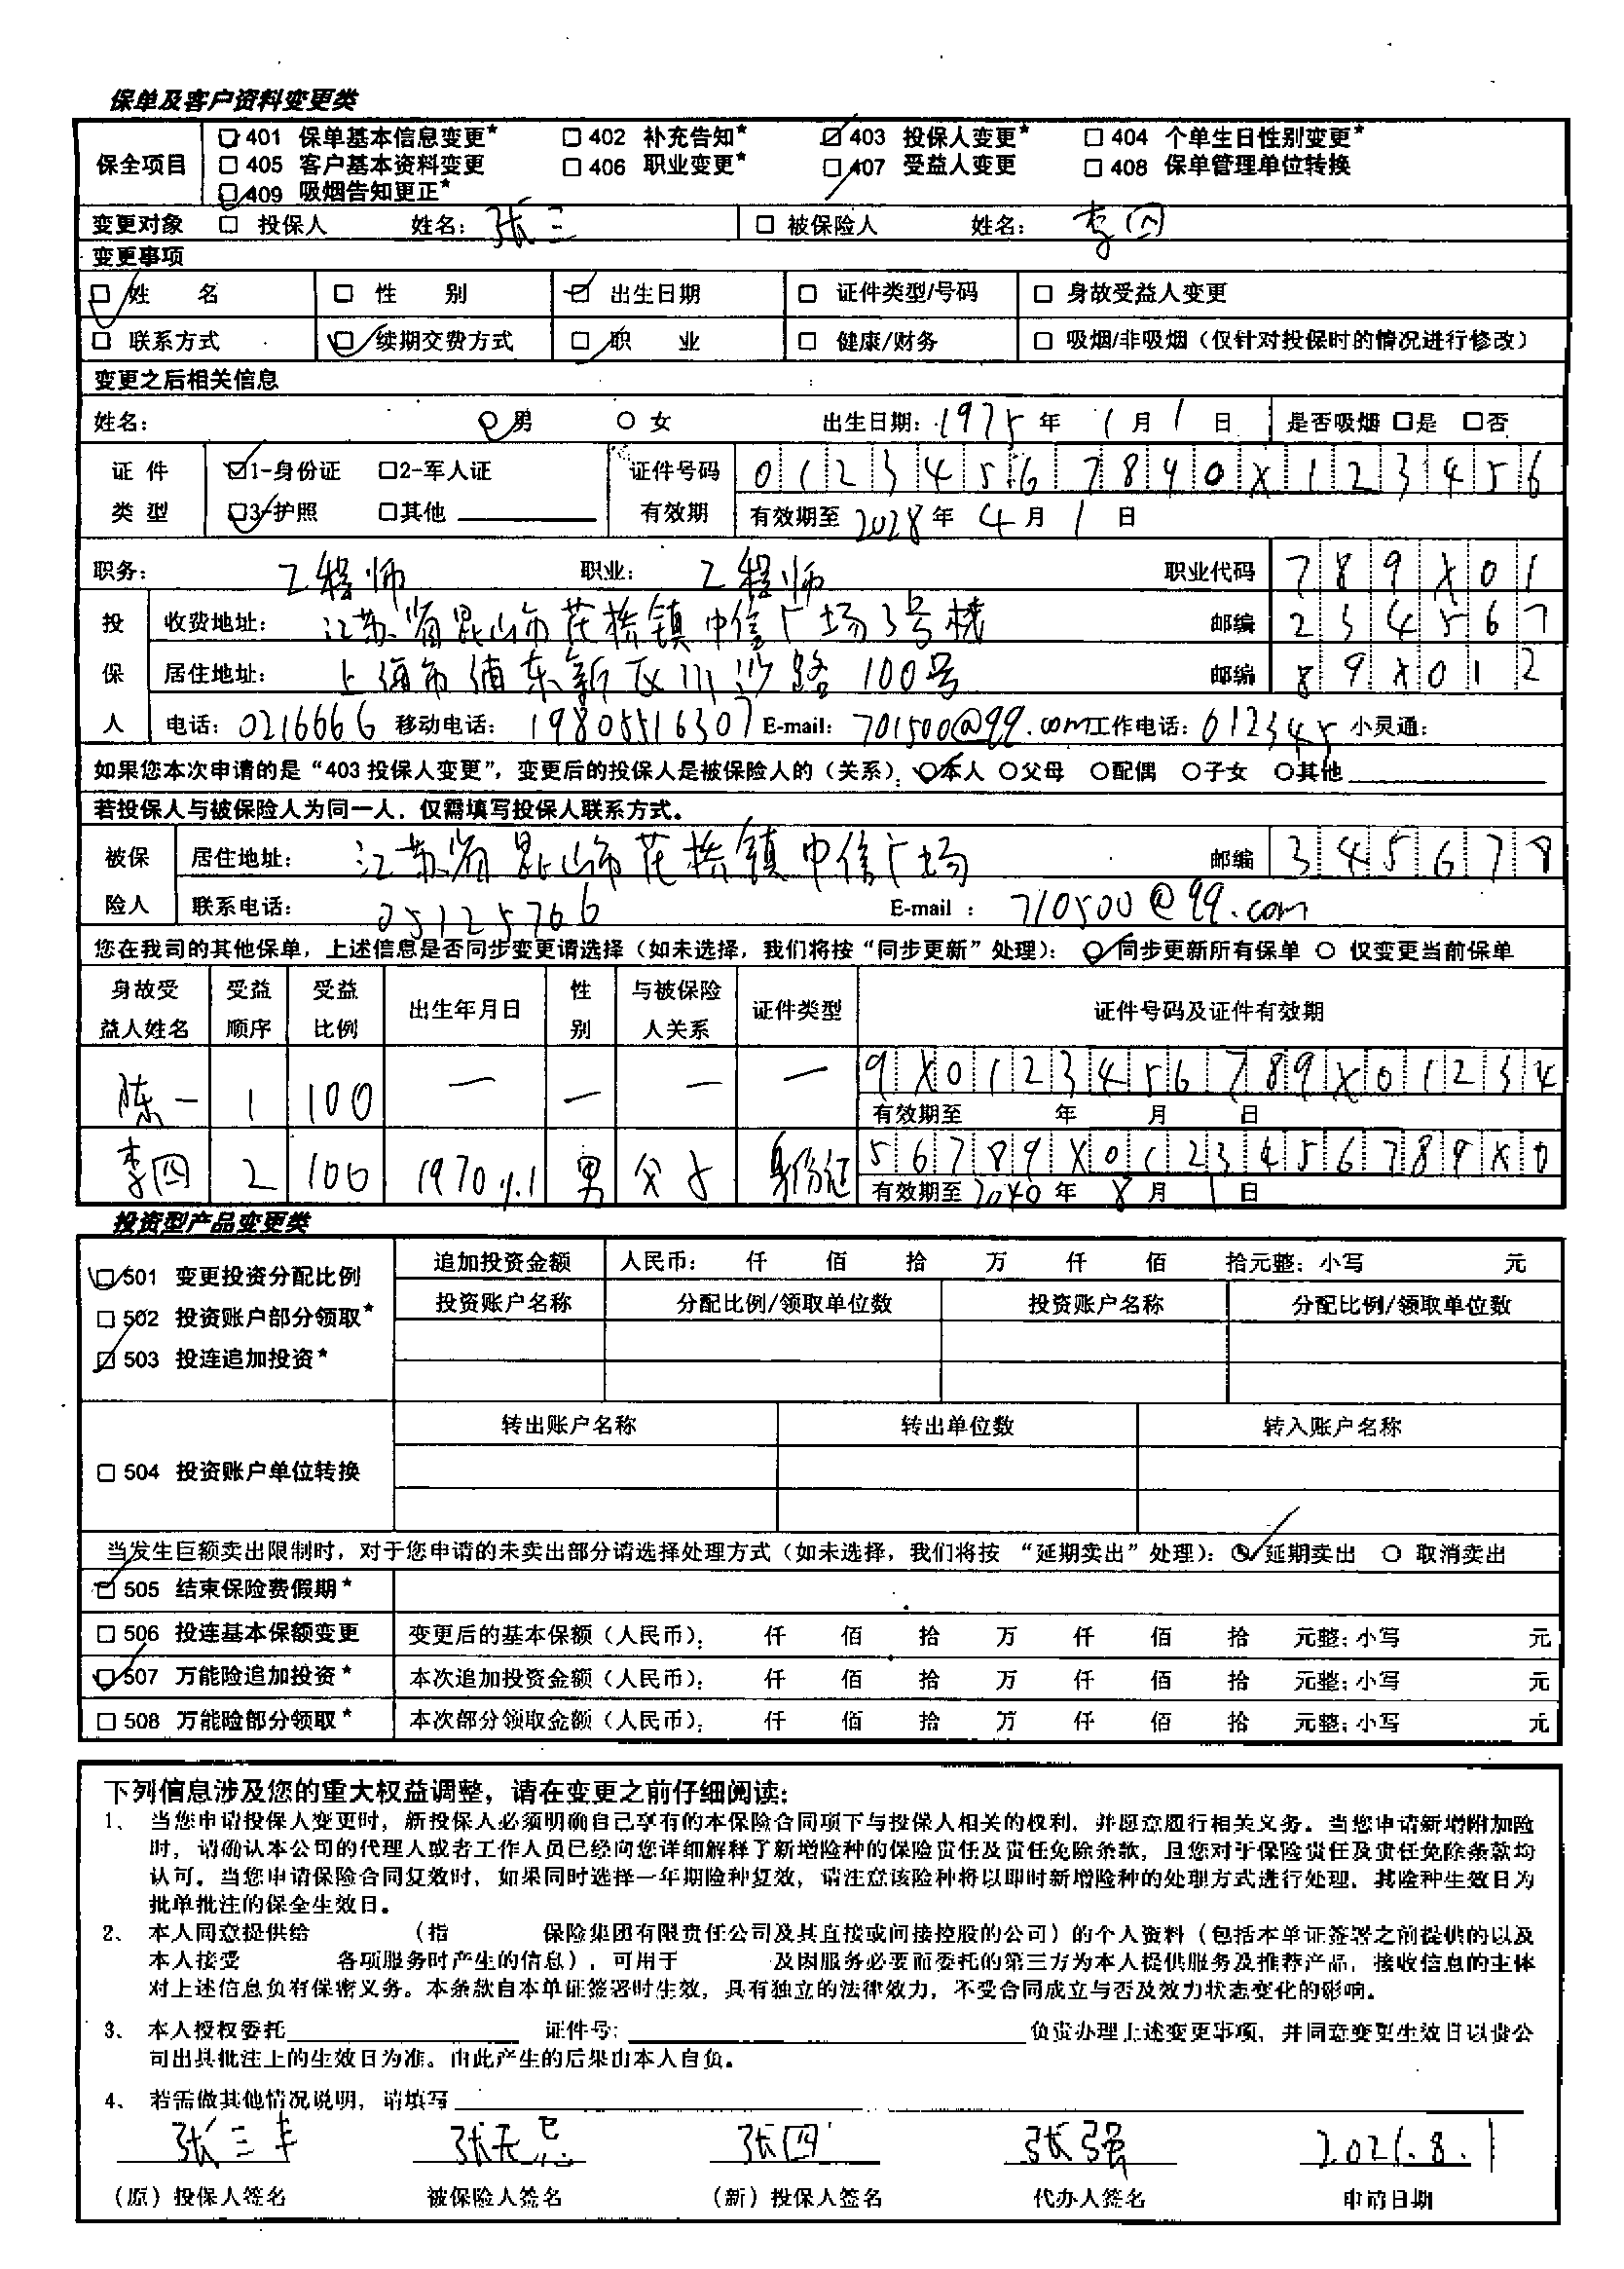 保单及客户资料变更类
保全项目
401 保单基本信息变更* 402 补充告知* 403 投保人变更* 404 个单生日性别变更*
405 客户基本资料变更 406 职业变更* 407 受益人变更 408 保单管理单位转换
409 吸烟告知更正*
变更对象 投保人 姓名：张三 被保险人 姓名：李四
变更事项
姓 名 性 别 出生日期 证件类型/号码 身故受益人变更
联系方式 续期交费方式 职 业 健康/财务 吸烟/非吸烟（仅针对投保时的情况进行修改）
变更之后相关信息
姓名： 男 女 出生日期：1975年1月1日 是否吸烟 是 否
证件类型 1-身份证 2-军人证 证件号码 01234567890X123456
3-护照 其他 有效期 有效期至2028年4月1日
职务：工程师 职业：工程师 职业代码 789X01
投保人 收费地址：江苏省昆山市花桥镇中信广场3号楼 邮编 234567
居住地址：上海市浦东新区川沙路100号 邮编 89X012
电话：0216666 移动电话：19805516307 E-mail：701500@qq.com 工作电话：012345 小灵通：
如果您本次申请的是“403投保人变更”，变更后的投保人是被保险人的（关系）：本人 父母 配偶 子女 其他
若投保人与被保险人为同一人，仅需填写投保人联系方式。
被保险人 居住地址：江苏省昆山市花桥镇中信广场 邮编 345678
联系电话：05125766 E-mail：710500@qq.com
您在我司的其他保单，上述信息是否同步变更请选择（如未选择，我们将按“同步更新”处理）：同步更新所有保单 仅变更当前保单
身故受益人姓名 受益顺序 受益比例 出生年月日 性别 与被保险人关系 证件类型 证件号码及证件有效期
陈一 1 100 — — — — 9X0123456789X01234
有效期至 年 月 日
李四 2 100 1970.1.1 男 父子 身份证 56789X0123456789X0
有效期至2040年8月1日
投资型产品变更类
501 变更投资分配比例 追加投资金额 人民币： 仟 佰 拾 万 仟 佰 拾元整；小写 元
502 投资账户部分领取* 投资账户名称 分配比例/领取单位数 投资账户名称 分配比例/领取单位数
503 投连追加投资*
转出账户名称 转出单位数 转入账户名称
504 投资账户单位转换
当发生巨额卖出限制时，对于您申请的未卖出部分请选择处理方式（如未选择，我们将按 “延期卖出”处理）：延期卖出 取消卖出
505 结束保险费假期*
506 投连基本保额变更 变更后的基本保额（人民币）： 仟 佰 拾 万 仟 佰 拾 元整；小写 元
507 万能险追加投资* 本次追加投资金额（人民币）： 仟 佰 拾 万 仟 佰 拾 元整；小写 元
508 万能险部分领取* 本次部分领取金额（人民币）： 仟 佰 拾 万 仟 佰 拾 元整；小写 元
下列信息涉及您的重大权益调整，请在变更之前仔细阅读：
1、 当您申请投保人变更时，新投保人必须明确自己享有的本保险合同项下与投保人相关的权利，并愿意履行相关义务。当您申请新增附加险
时，请确认本公司的代理人或者工作人员已经向您详细解释了新增险种的保险责任及责任免除条款，且您对于保险责任及责任免除条款均
认可。当您申请保险合同复效时，如果同时选择一年期险种复效，请注意该险种将以即时新增险种的处理方式进行处理，其险种生效日为
批单批注的保全生效日。
2、 本人同意提供给 （指 保险集团有限责任公司及其直接或间接控股的公司）的个人资料（包括本单证签署之前提供的以及
本人接受 各项服务时产生的信息），可用于 及因服务必要而委托的第三方为本人提供服务及推荐产品，接收信息的主体
对上述信息负有保密义务。本条款自本单证签署时生效，具有独立的法律效力，不受合同成立与否及效力状态变化的影响。
3、 本人授权委托 证件号： 负责办理上述变更事项，并同意变更生效日以贵公
司出具批注上的生效日为准。由此产生的后果由本人自负。
4、 若需做其他情况说明，请填写
张三丰 张无忌 张四 张强 2021.8.1
（原）投保人签名 被保险人签名 （新）投保人签名 代办人签名 申请日期